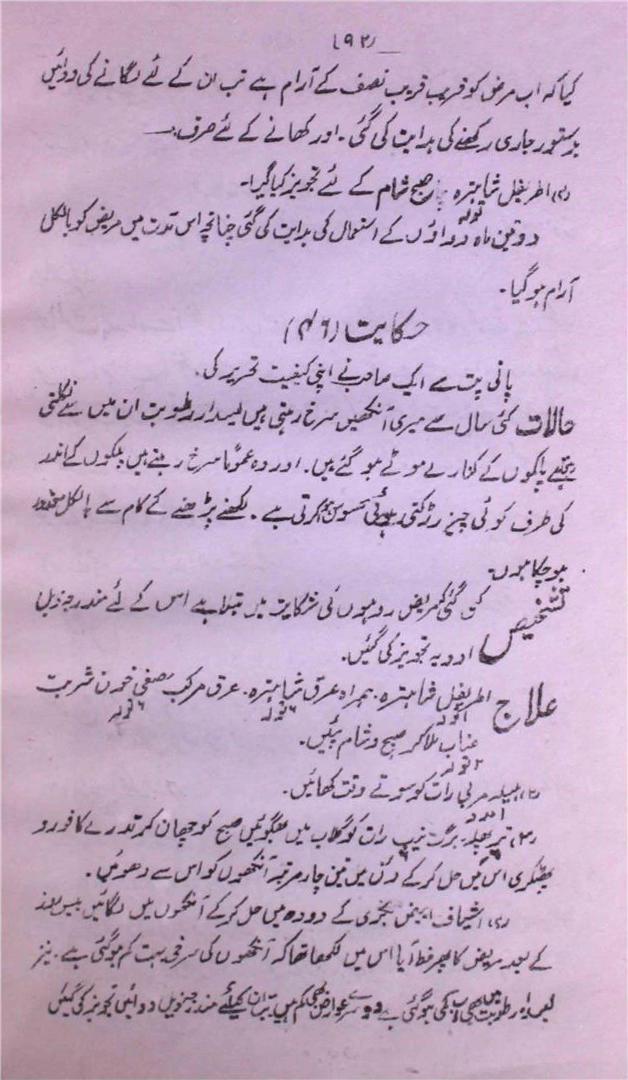 (۹۲)
کیا کہ اب مرض کو قریب قریب نصف کے آرام ہے تب ان کے لئے لگانے کی دوائیں
بدستور جاری رکھنے کی ہدایت کی گئی۔ اور کھانے کے لئے صرف۔
(۲) اطریفل شاہترہ صبح شام کے لئے تجویز کیا گیا۔
تولہ
دو تین ماہ دواؤں کے استعمال کی ہدایت کی گئی چنانچہ اس مدت میں مریض کو بالکل
آرام ہوگیا۔
حکایت (۴۶)
پانی پت سے ایک صاحب نے اپنی کیفیت تحریر کی۔
حالات کئی سال سے میری آنکھیں سرخ رہتی ہیں لیسدار رطوبت ان میں سے نکلتی
پلکوں کے کنارے موٹے ہوگئے ہیں۔ اور وہ عموماً سرخ رہتے ہیں پلکوں کے اندر
کی طرف کوئی چیز رڑکتی ہوئی محسوس ہوا کرتی ہے۔ لکھنے پڑھنے کے کام سے بالکل معذور
ہوچکا ہوں۔
تشخیص کی گئی کہ مریض روہوں کی شکایت میں مبتلا ہے اس کے لئے مندرجہ ذیل
ادویہ تجویز کی گئیں۔
علاج اطریفل شاہترہ۔ ہمراہ عرق شاہترہ۔ عرق مرکب مصفی خون شربت
تولہ ۶ تولہ ۶ تولہ
عناب ملاکر صبح و شام پئیں۔
۲ تولہ
(۲) ہلیلہ مربی رات کو سوتے وقت کھائیں۔
۱ عدد
(۳) تر پھلہ۔ برگ نیب رات کو گلاب میں بھگوئیں صبح کو چھان کر قدرے کافور و
پھٹکری اس میں حل کرکے دن میں تین چار مرتبہ آنکھوں کو اس سے دھوئیں۔
(۴) اشیاف ابیض بکری کے دودھ میں حل کرکے آنکھوں میں لگائیں بیس روز
کے بعد مریض کا پھر خط آیا اس میں لکھا تھا کہ آنکھوں کی سرخی بہت کم ہوگئی ہے۔ نیز
لیسدار رطوبت میں بھی اب کمی ہوگئی ہے دوسرے عوارض بھی کم ہیں تب ان کیلئے مندرجہ ذیل دوائیں تجویز کی گئیں